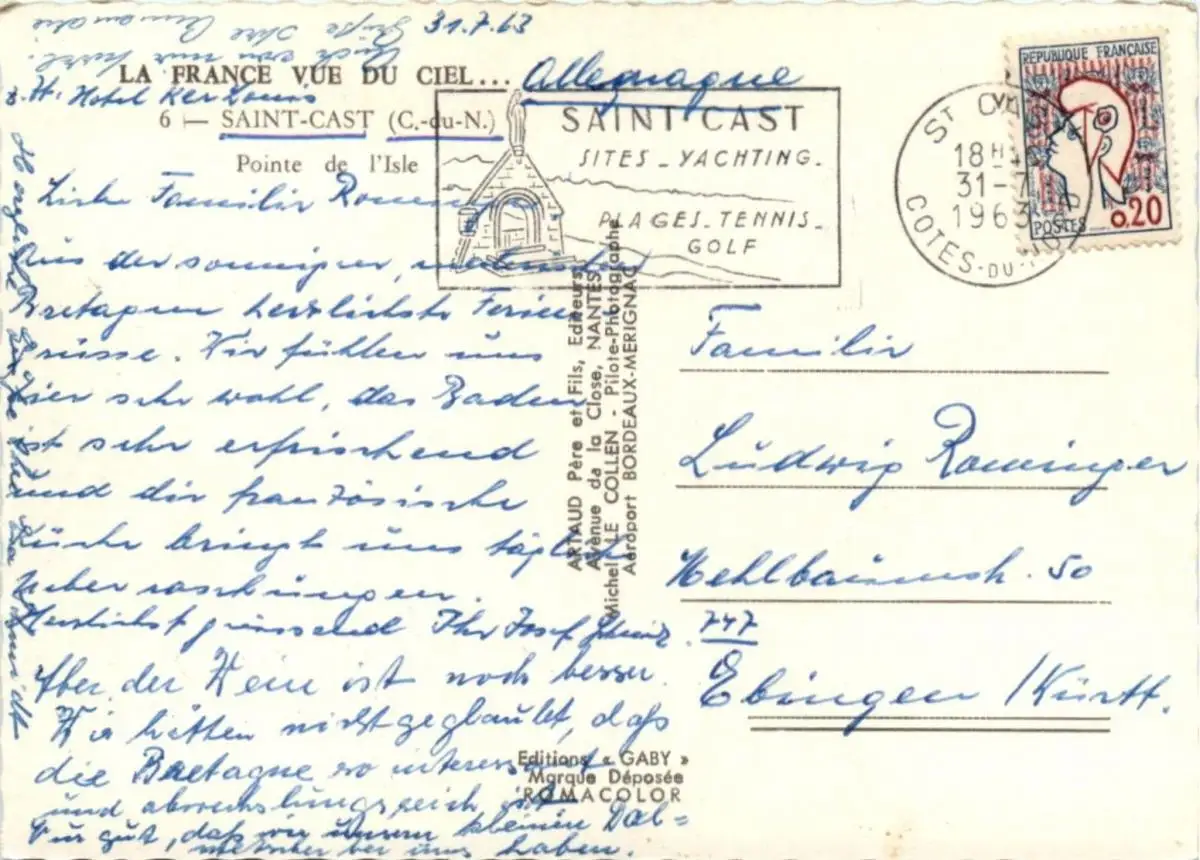 31.7.63
LA FRANCE VUE DU CIEL...
Allemagne
z. Zt. Hotel Ker Louis
6 — SAINT-CAST (C.-du-N.)
Pointe de l'Isle
SAINT CAST
SITES - YACHTING -
PLAGES - TENNIS -
GOLF
18 H
31-7
1963
COTES-DU-
RÉPUBLIQUE FRANÇAISE
POSTES
0,20
Liebe Familie
Aus der sonnigen,
Bretagne herzlichste Ferien
Grüsse. Wir fühlen uns
hier sehr wohl, das Baden
ist sehr erfrischend
und die französische
Küche bringt uns täglich
Ueberraschungen.
Herzlichst grüssend Ihr Josef
Aber der Wein ist noch besser.
Wir hätten nicht geglaubt, daß
die Bretagne so interessant
und abwechslungsreich ist
Nur gut, daß wir unsern kleinen Dol=
metscher bei uns haben.
Herzliche Grüße
Auch von mir herzl.
Grüße Ihre
ARTAUD Père et Fils, Editeurs
Avenue da la Close, NANTES
Michel LE COLLEN - Pilote-Photographe
Aéroport BORDEAUX-MERIGNAC
Editions « GABY »
Marque Déposée
ROMACOLOR
Familie
Ludwig Rominger
Mehlbaumstr. 50
747
Ebingen /Württ.